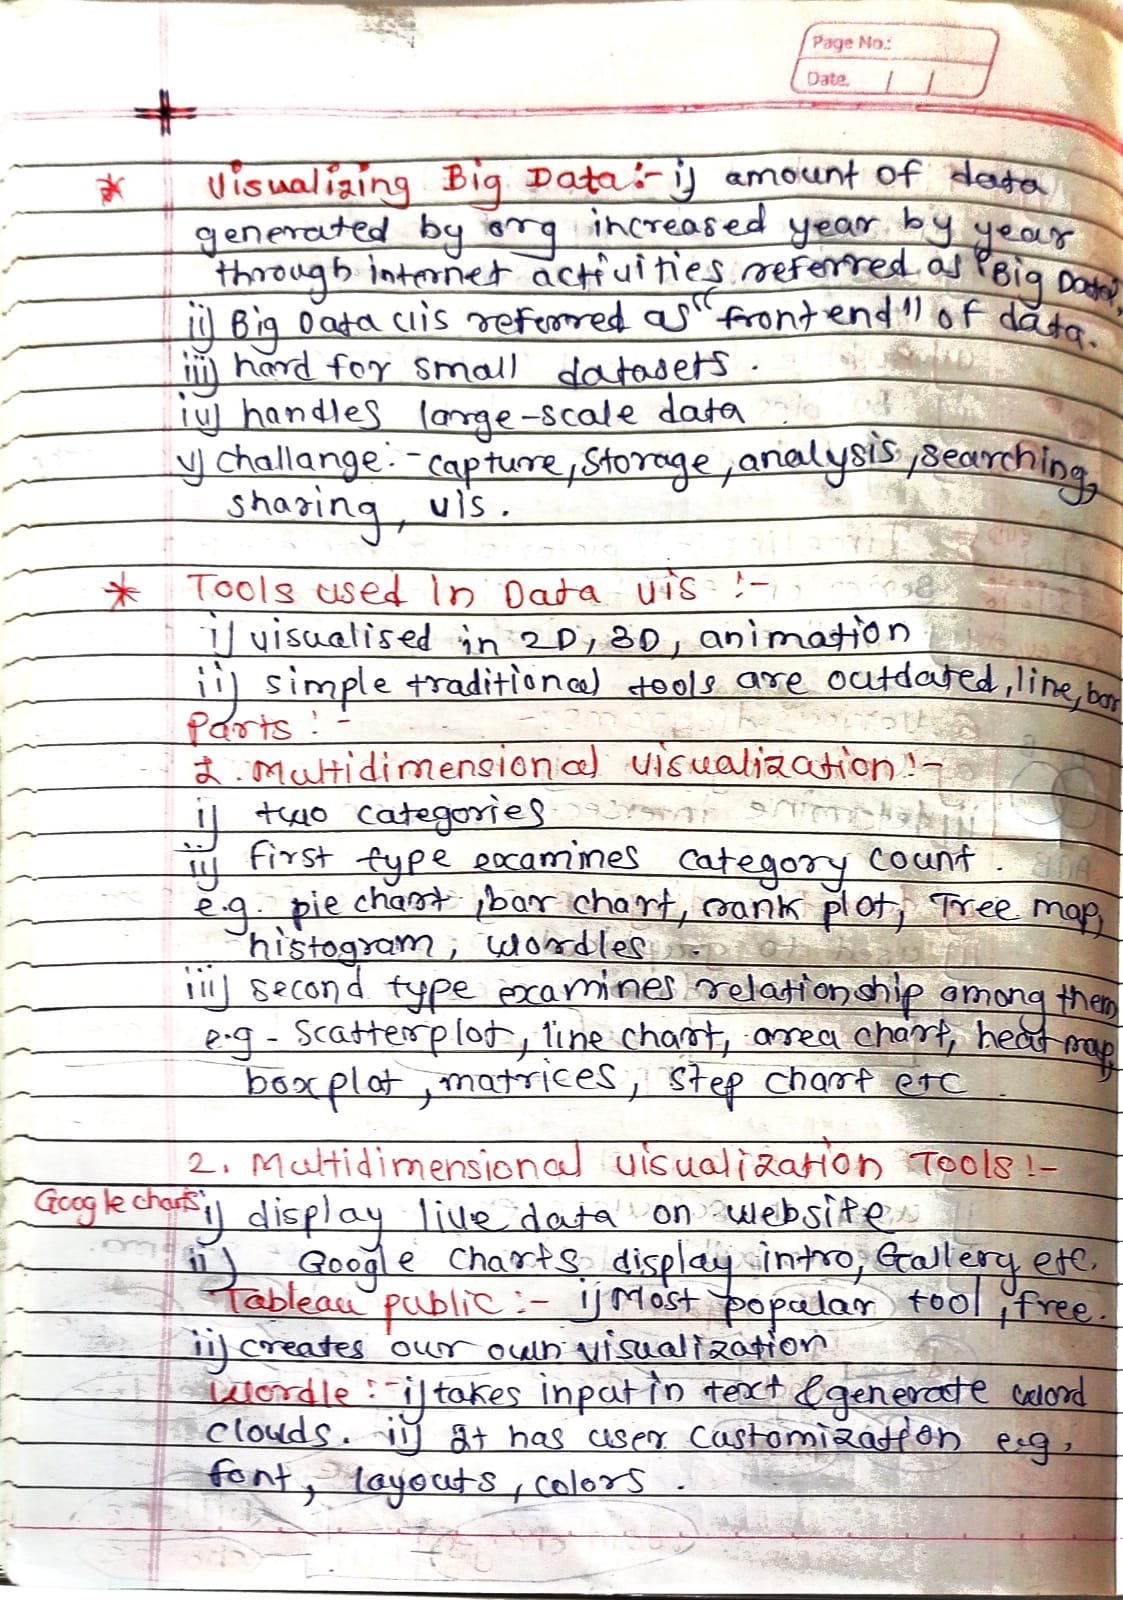 Page No.:
Date.
* Visualizing Big Data :- i) amount of data
generated by org increased year by year
through internet activities referred as "Big Data",
ii) Big Data vis referred as "front end" of data.
iii) hard for small datasets.
iv) handles large-scale data
v) challange :- capture, storage, analysis, searching,
sharing, vis.
* Tools used In Data vis :-
i) visualised in 2D, 3D, animation
ii) simple traditional tools are outdated, line, bar
Parts :-
1. Multidimensional visualization :-
i) two categories
ii) first type examines category count.
e.g. pie chart, bar chart, rank plot, Tree map,
histogram, wordles.
iii) second type examines relationship among them
e.g - scatterplot, line chart, area chart, heat map,
box plot, matrices, step chart etc.
2. Multidimensional visualization Tools :-
Google charts i) display live data on website
ii) Google charts display intro, Gallery etc.
Tableau public :- i) Most popular tool, free.
ii) creates our own visualization
Wordle :- i) takes input in text & generate word
clouds. ii) It has user customization e.g,
font, layouts, colors.